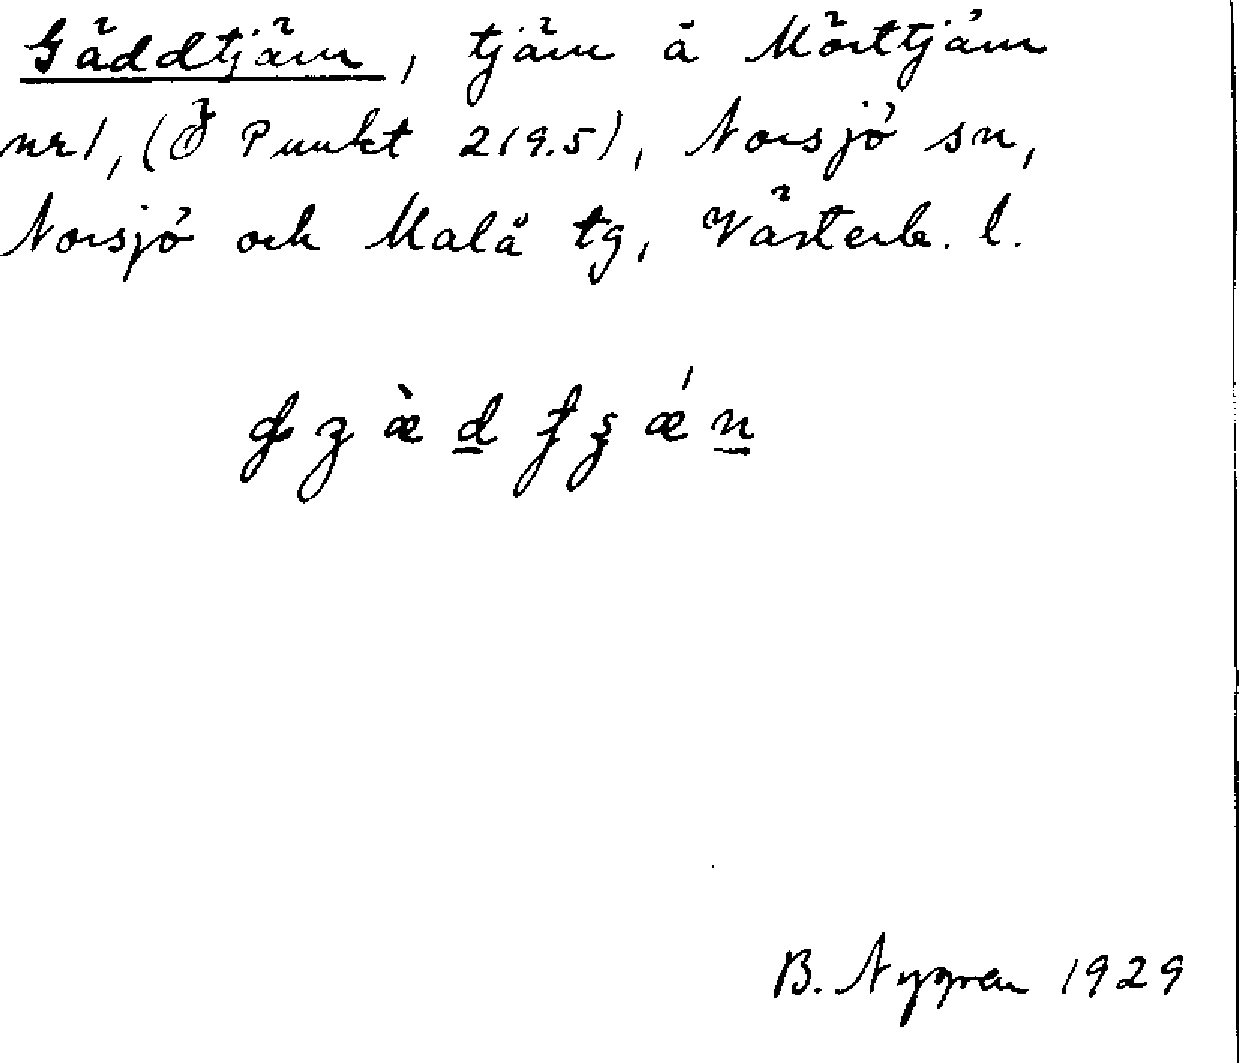 Gäddtjärn, tjärn å Mörttjärn
nr 1, (Ö Punkt 219.5), Norsjö sn,
Norsjö och Malå tg, Västerb. l.
B. Nygren 1929